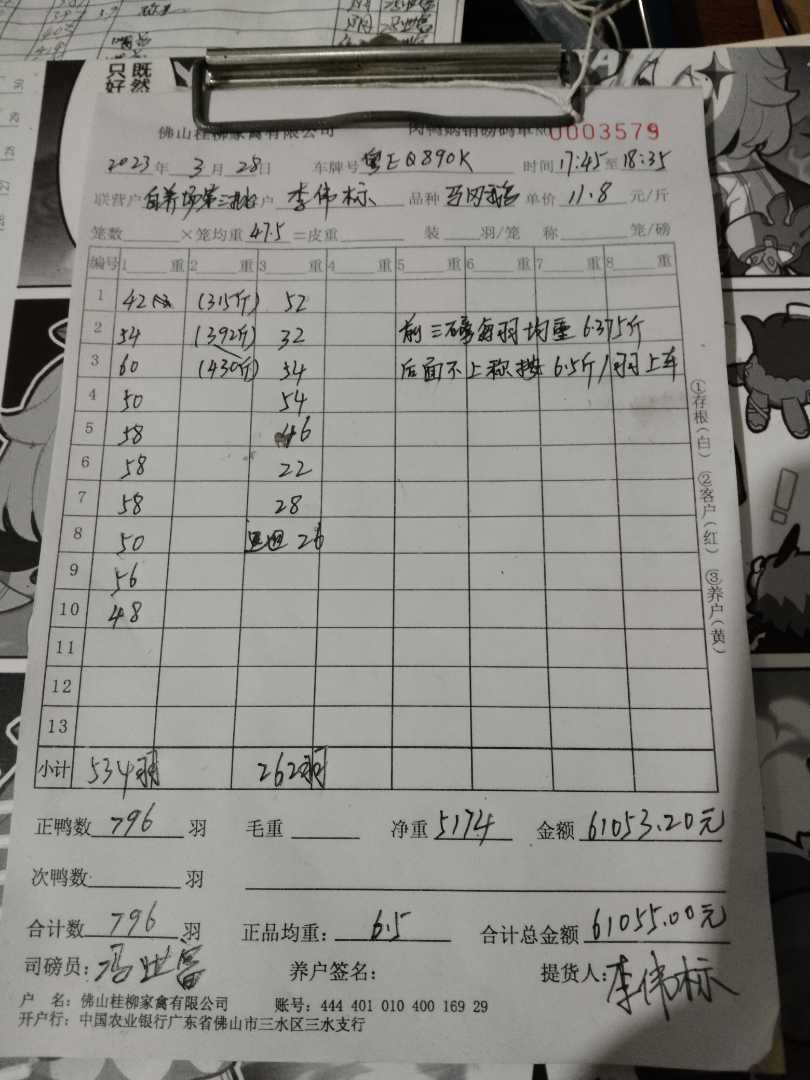 只 既
好 然
佛山桂柳家禽有限公司 肉鸭购销磅码单 0003579
2023年 3月 28日 车牌号 粤EQ890K 时间 17:45至18:35
联营户 自养场第三批 客户 李伟标 品种 单价 11.8 元/斤
笼数 ×笼均重 47.5 =皮重 装 羽/笼 称 笼/磅
编号 1 重 2 重 3 重 4 重 5 重 6 重 7 重 8 重
1 42 (315斤) 52
2 54 (392斤) 32 前三磅每羽均重 6.375斤
3 60 (430斤) 54 后面不上称按 6.5斤/羽上车
4 50 54
5 58 46
6 58 22
7 58 28
8 50 26
9 56
10 48
11
12
13
小计 534羽 262羽
正鸭数 796 羽 毛重 净重 5174 金额 61053.20元
次鸭数 羽
合计数 796 羽 正品均重: 6.5 合计总金额 61055.00元
司磅员: 冯世富 养户签名: 提货人: 李伟标
户 名: 佛山桂柳家禽有限公司 账号: 444 401 010 400 169 29
开户行: 中国农业银行广东省佛山市三水区三水支行
①存根(白) ②客户(红) ③养户(黄)